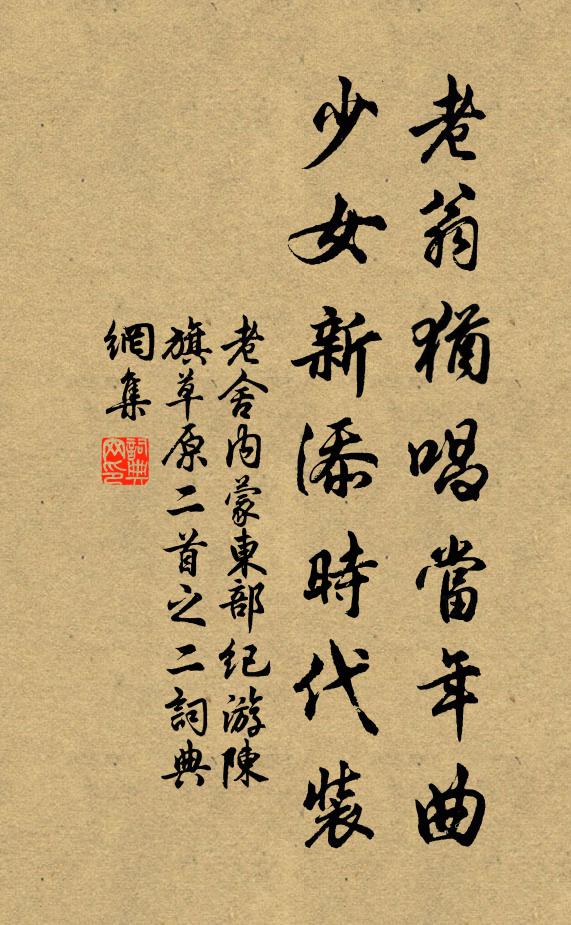 老翁猶唱當年曲
少女新添時代裝
老舍内蒙東部纪游陳
旗草原二首之二詞典
網集
詞典
网印